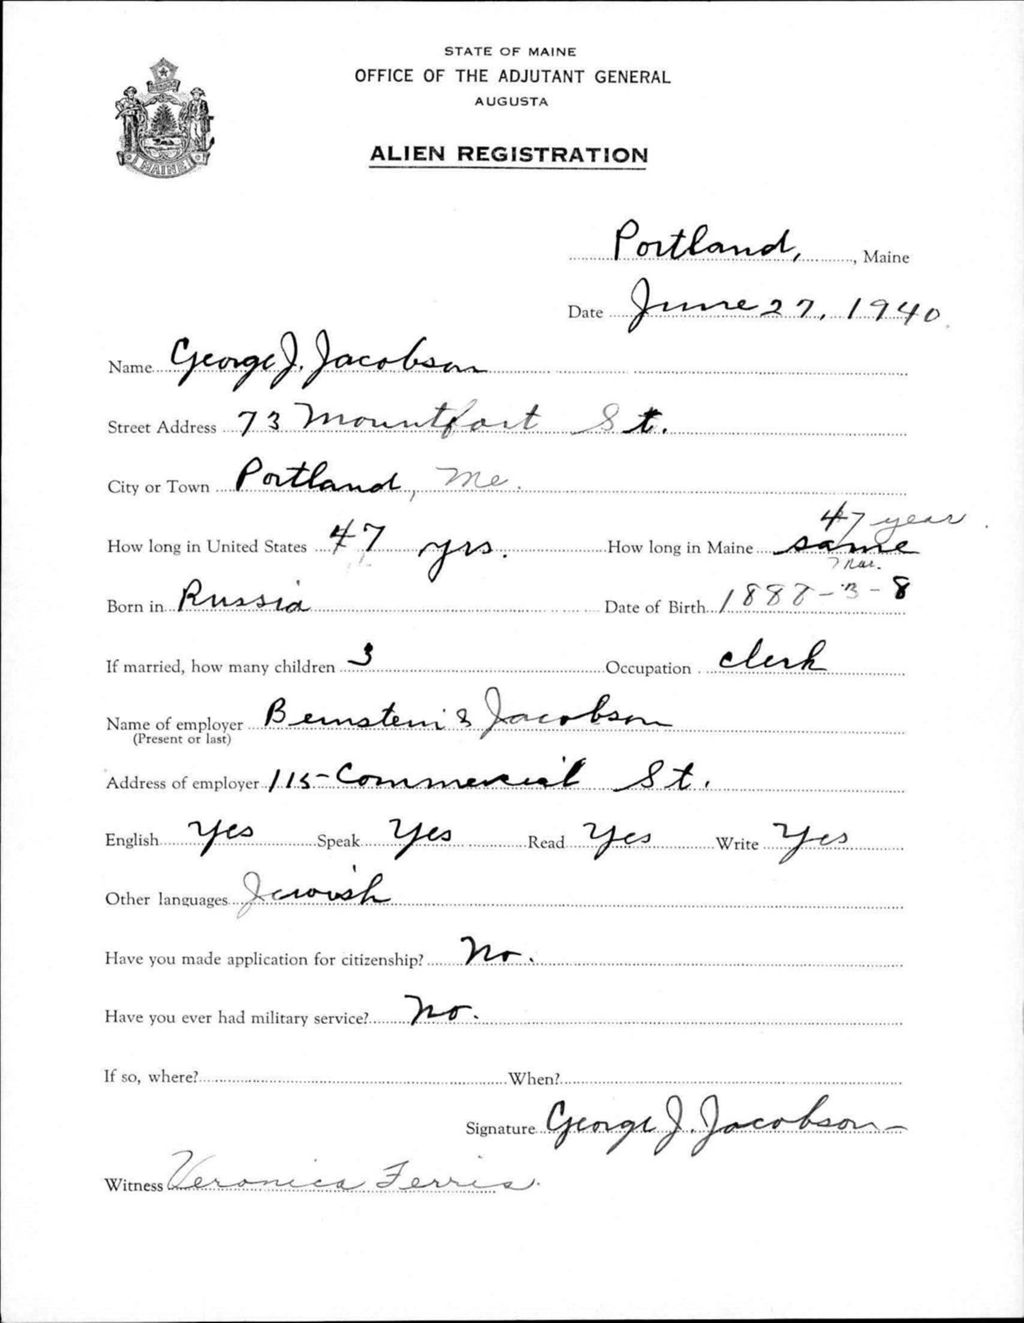 STATE OF MAINE
OFFICE OF THE ADJUTANT GENERAL
AUGUSTA
ALIEN REGISTRATION
MAINE
Portland, , Maine
Date June 27, 1940
Name George J. Jacobson
Street Address 73 Mountfort St.
City or Town Portland, Me.
47 year
How long in United States 47 yrs. How long in Maine same
Mar.
Born in Russia Date of Birth 1888-3-8
If married, how many children 3 Occupation clerk
Name of employer Bernstein & Jacobson
(Present or last)
Address of employer 115 - Commercial St.
English Yes Speak Yes Read Yes Write Yes
Other languages Jewish
Have you made application for citizenship? No.
Have you ever had military service? No.
If so, where? When?
Signature George J. Jacobson
Witness Veronica Ferris.